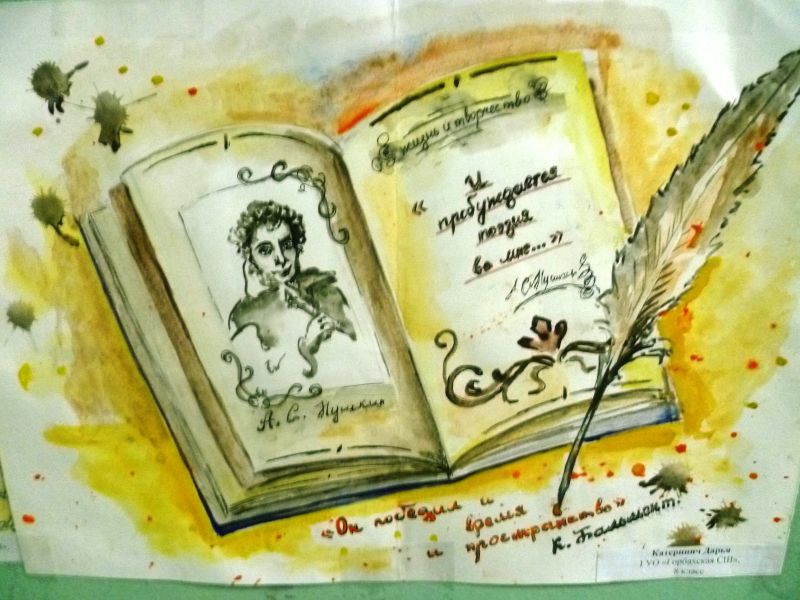 А. С. Пушкин
жизнь и творчество
« И
пробуждается
поэзия
во мне... »
А.С.Пушкин
«Он победил и время
и пространство»
К. Бальмонт.
Катеринич Дарья
ГУО «Горбахская СШ»,
8 класс